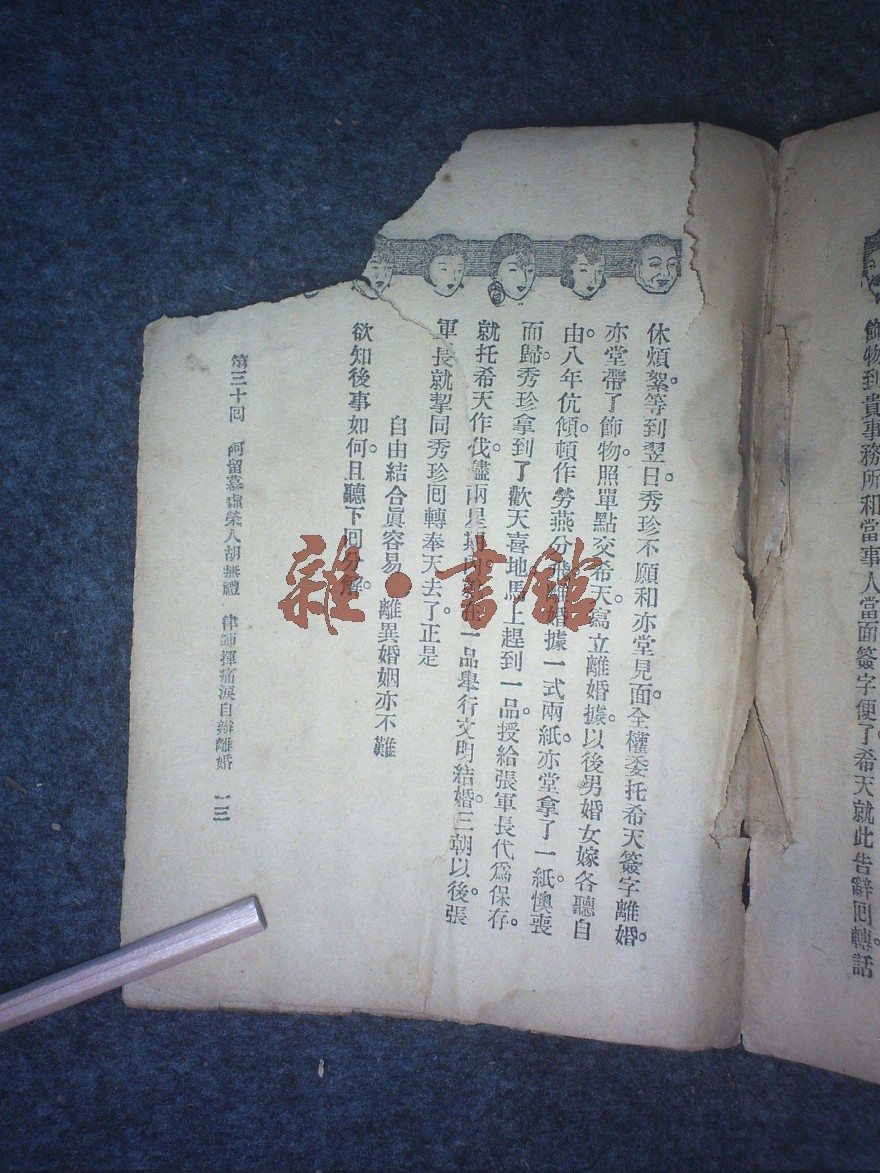 飾物到貴事務所和當事人當面簽字便了。希天就此告辭回轉。話
休煩絮。等到翌日。秀珍不願和亦堂見面。全權委托希天簽字離婚。
亦堂帶了飾物。照單點交希天。寫立離婚據。以後男婚女嫁各聽自
由。八年伉傾。頓作勞燕分飛。離婚據一式兩紙。亦堂拿了一紙。懊喪
而歸。秀珍拿到了歡天喜地。馬上趕到一品。授給張軍長代爲保存。
就托希天作伐。儘兩星期內
一品舉行文明結婚。三朝以後。張
軍長就挈同秀珍回轉奉天去了。正是
自由結合眞容易 離異婚姻亦不難
欲知後事如何。且聽下回分解。
第三十回 阿留慕虛榮人胡無禮 律師揮痛淚自辦離婚 一三
雜·書館